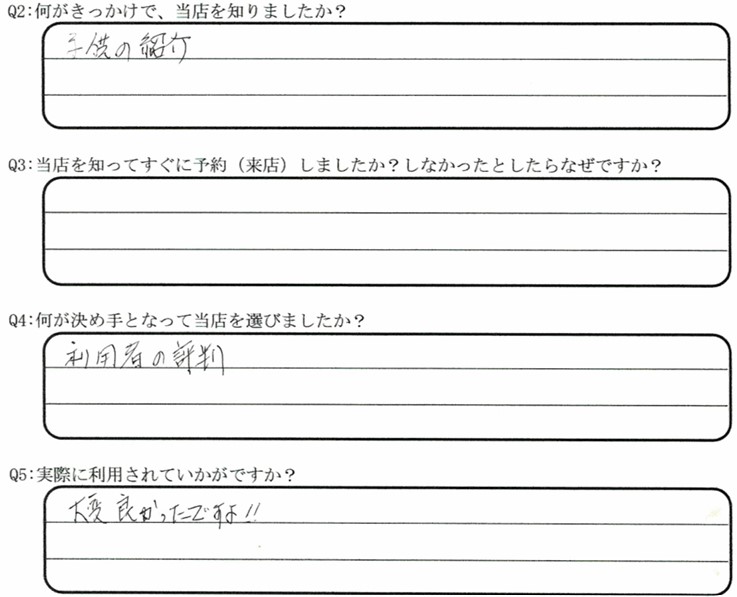 Q2:何がきっかけで、当店を知りましたか？
子供の紹介
Q3:当店を知ってすぐに予約（来店）しましたか？しなかったとしたらなぜですか？
Q4:何が決め手となって当店を選びましたか？
利用者の評判
Q5:実際に利用されていかがですか？
大変良かったですよ!!